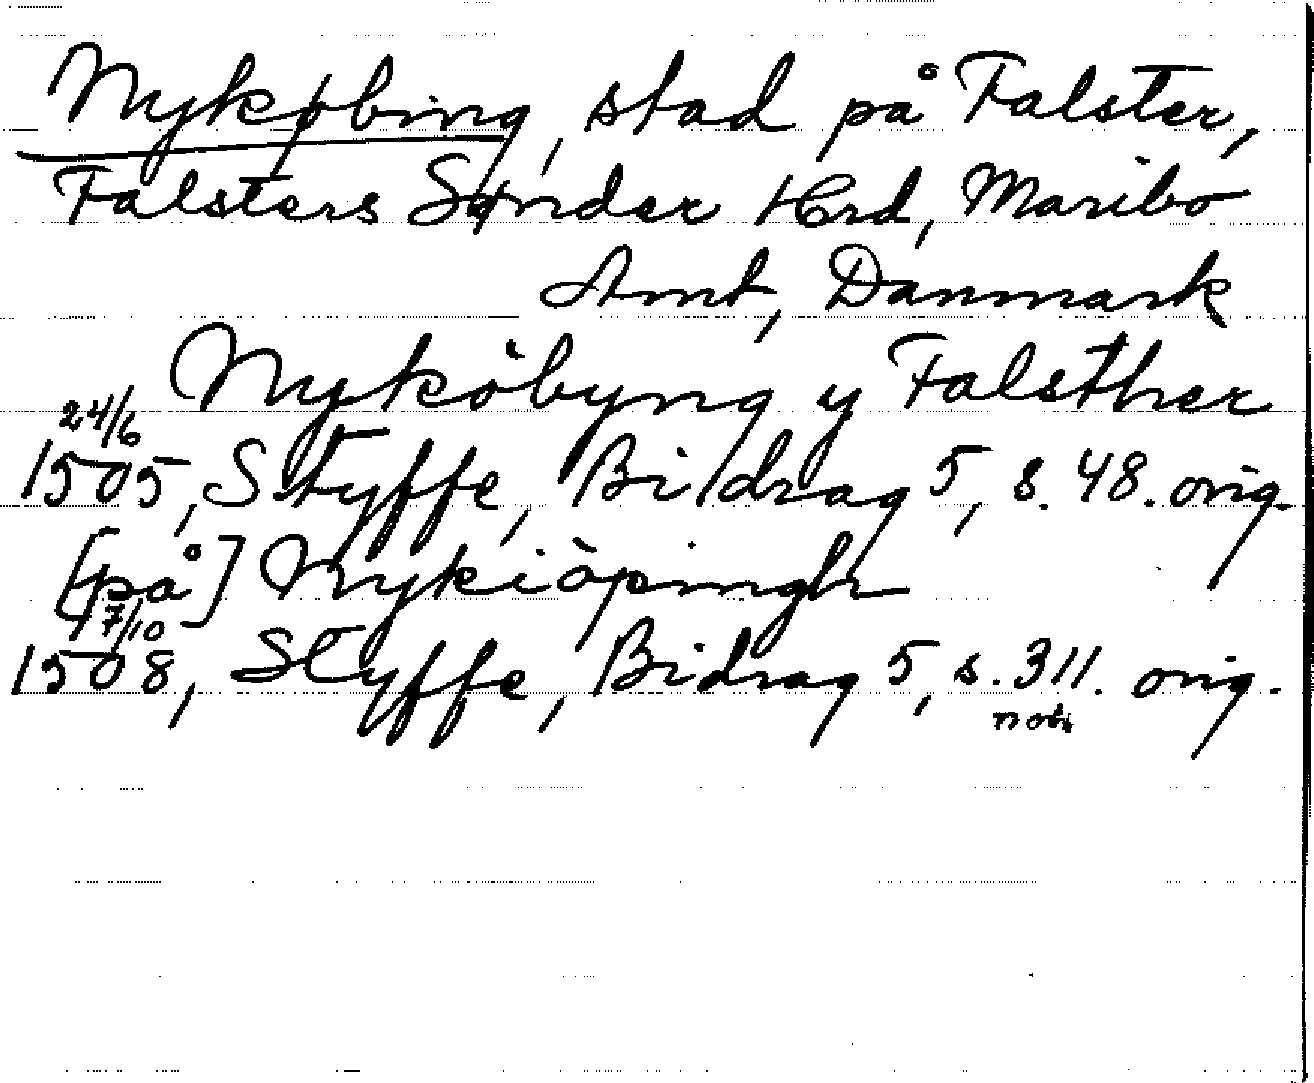 Nykøbing, stad på Falster,
Falsters Sønder Hrd, Maribo
Amt, Danmark
Nyköbyng y Falsther
24/6
1505, Styffe, Bidrag 5, s. 48. orig.
[på] Nykiöpingh
17/10
1508, Styffe, Bidrag 5, s. 311. orig.
not.